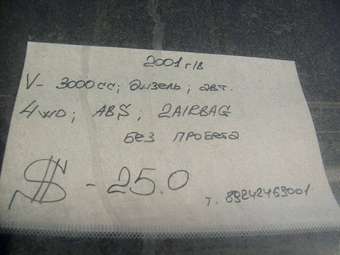 2001 г/в
V- 3000cc; дизель; авт.
4WD; ABS, 2AIRBAG
БЕЗ ПРОБЕГА
$ - 25.0
т. 89242469001